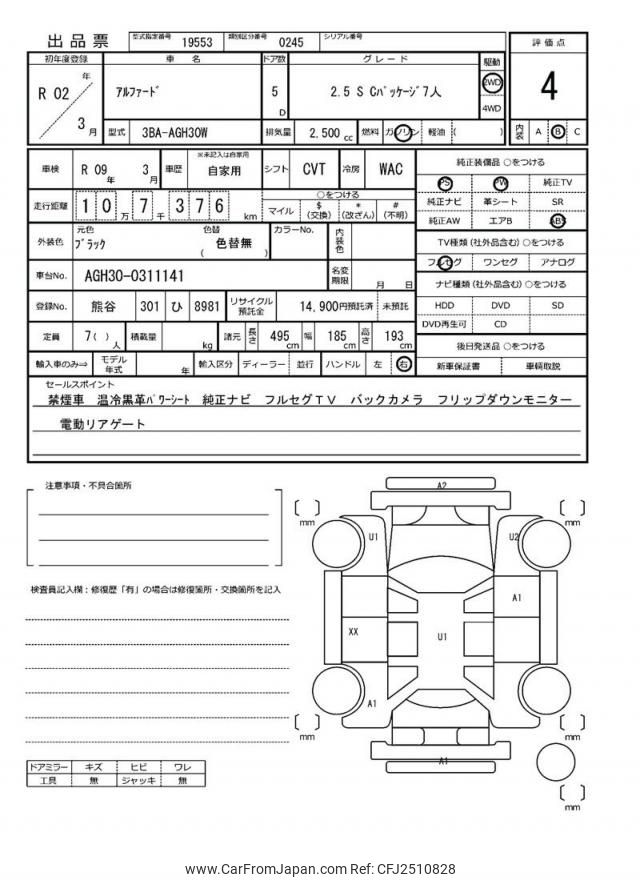 出品票 型式指定番号 19553 類別区分番号 0245 シリアル番号
初年度登録 車 名 ドア数 グレード 駆動 評価点
R 02 年 3 月 アルファード 5 D 2.5 S Cパッケージ7人 2WD 4WD 4
型式 3BA-AGH30W 排気量 2,500 cc 燃料 ガソリン 軽油 ( ) 内装 A B C
車検 R 09 年 3 月 車歴 ※未記入は自家用 自家用 シフト CVT 冷房 WAC
走行距離 1 0 万 7 千 3 7 6 km ○をつける マイル $ (交換) * (改ざん) # (不明)
外装色 元色 ブラック 色替 ( 色替無 ) カラーNo. 内装色
車台No. AGH30-0311141 名変期限 月 日
登録No. 熊谷 301 ひ 8981 リサイクル預託金 14,900円預託済 未預託
定員 7( ) 人 積載量 kg 諸元 長さ 495 cm 幅 185 cm 高さ 193 cm
輸入車のみ⇒ モデル年式 年 輸入区分 ディーラー 並行 ハンドル 左 右
純正装備品 ○をつける
PS PW 純正TV
純正ナビ 革シート SR
純正AW エアB ABS
TV種類(社外品含む) ○をつける
フルセグ ワンセグ アナログ
ナビ種類(社外品含む) ○をつける
HDD DVD SD
DVD再生可 CD
後日発送品 ○をつける
新車保証書 車輌取説
セールスポイント
禁煙車 温冷黒革パワーシート 純正ナビ フルセグTV バックカメラ フリップダウンモニター
電動リアゲート
注意事項・不具合箇所
検査員記入欄:修復歴「有」の場合は修復箇所・交換箇所を記入
ドアミラー キズ ヒビ ワレ
工具 無 ジャッキ 無
A2
mm mm
U1 U2
A1
XX U1
A1
mm mm
A1
mm
www.CarFromJapan.com Ref: CFJ2510828